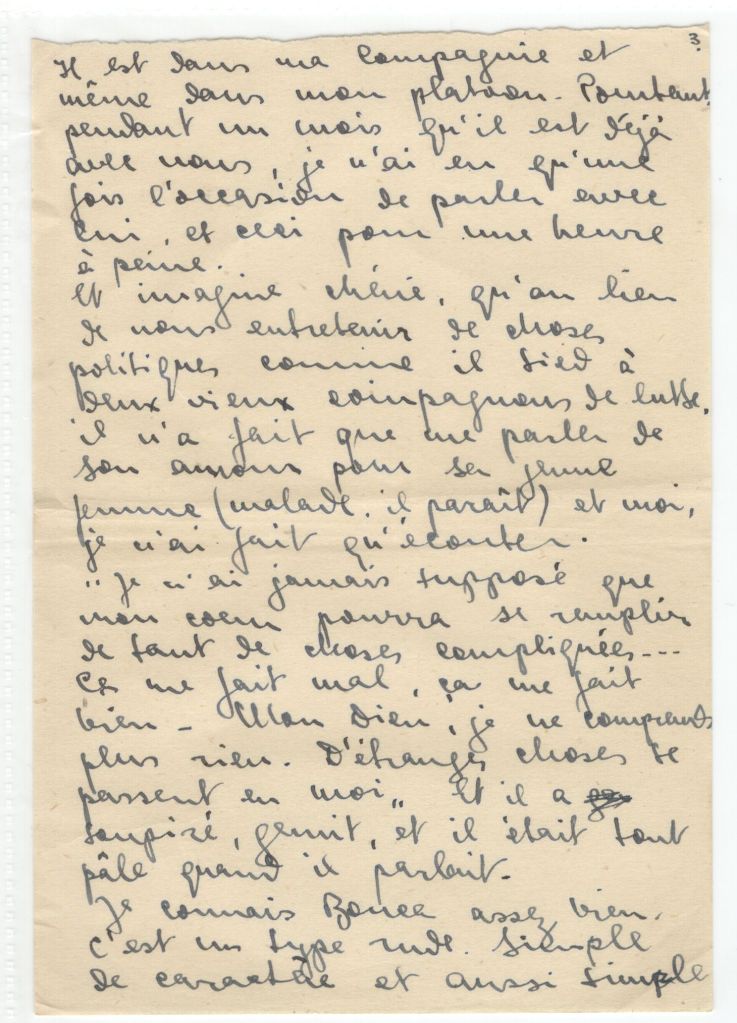 3.
Il est dans ma Compagnie et
même dans mon platoon. Pourtant,
pendant un mois qu'il est déjà
avec nous, je n'ai eu qu'une
fois l'occasion de parler avec
lui, et ceci pour une heure
à peine.
Et imagine chérie, qu'au lieu
de nous entretenir de choses
politiques comme il sied à
deux vieux compagnons de lutte,
il n'a fait que me parler de
son amour pour sa jeune
femme (malade, il paraît) et moi,
je n'ai fait qu'écouter.
"Je n'ai jamais supposé que
mon coeur pourra se remplir
de tant de choses compliquées...
Ça me fait mal, ça me fait
bien - Mon Dieu, je ne comprends
plus rien. D'étranges choses se
passent en moi" Et il a
soupiré, gemit, et il était tout
pâle quand il parlait.
Je connais assez bien.
C'est un type rude. Simple
de caractère et aussi simple